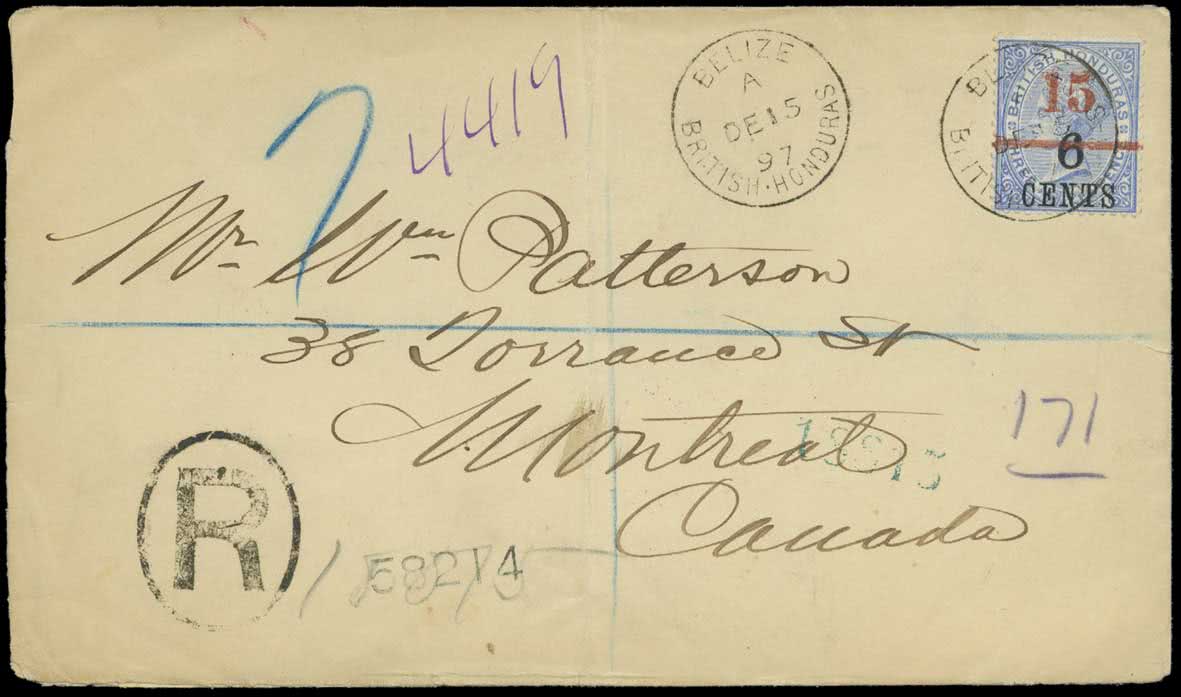 7
4419
BELIZE
A
DE 15
97
BRITISH·HONDURAS
BRITISH HONDURAS
15
6
CENTS
Mr Wm Patterson
38 Torrance St
Montreal
Canada
171
R
58214